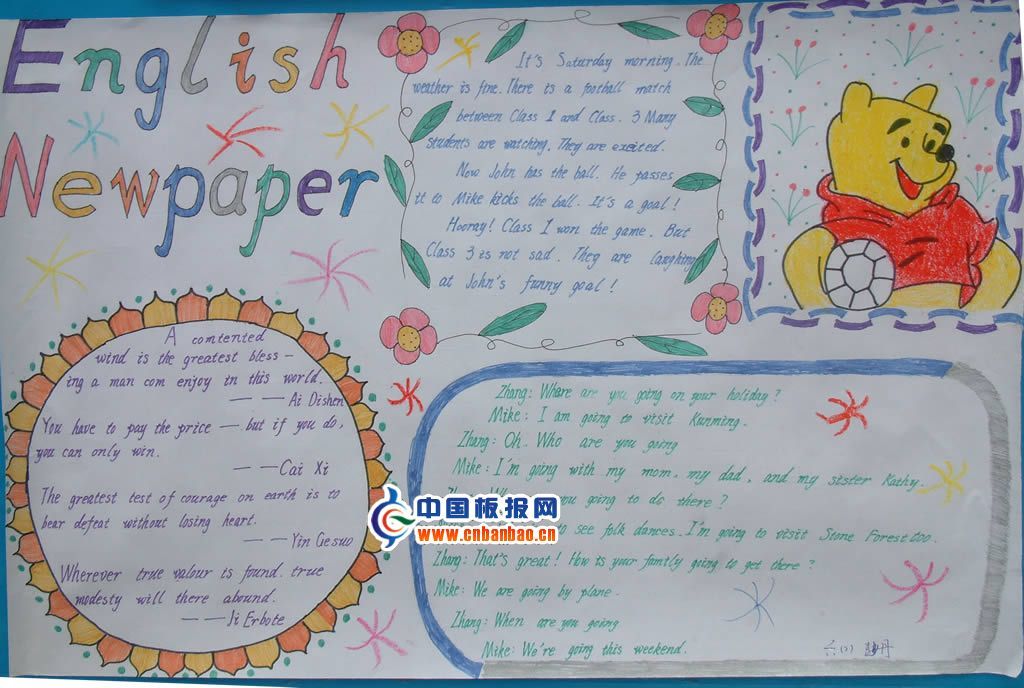 English
Newpaper
It's Saturday morning. The
weather is fine. There is a football match
between Class 1 and Class. 3 Many
students are watching. They are excited.
Now John has the ball. He passes
it to Mike kicks the ball. It's a goal!
Hooray! Class 1 won the game. But
Class 3 is not sad. They are laughing
at John's funny goal!
A comtented
wind is the greatest bless-
ing a man com enjoy in this world.
——Ai Dishen
You have to pay the price — but if you do,
you can only win.
——Cai Xi
The greatest test of courage on earth is to
bear defeat without losing heart.
——Yin Gesuo
Wherever true valour is found. true
modesty will there abound.
——Ji Erbote
Zhang: Whare are you going on your holiday?
Mike: I am going to visit Kunming.
Zhang: Oh. Who are you going
Mike: I'm going with my mom, my dad, and my sister Kathy.
you going to do there?
to see folk dances. I'm going to visit Stone Forest too.
Zhang: That's great! How is your famtly going to get there?
Mike: We are going by plane.
Zhang: When are you going
Mike: We're going this weekend.
六(2)
丹
中国板报网
www.cnbanbao.cn